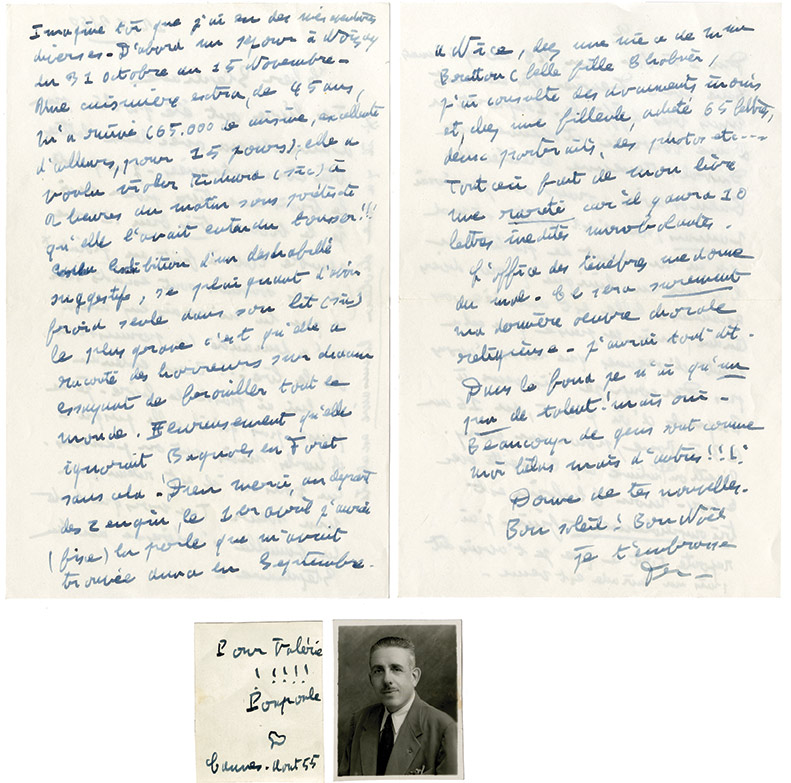 Imagine toi que j'ai eu des mésaventures
diverses - D'abord un séjour à Noizay
du 31 octobre au 15 Novembre -
Une cuisinière extra, de 45 ans,
m'a ruiné (65.000 de cuisine, excellente
d'ailleurs, pour 15 jours); elle a
voulu violer Richard (sic) à
2 heures du matin sous prétexte
qu'elle l'avait entendu tousser!!!
Exhibition d'un deshabillé
suggestif, se plaignant d'avoir
froid seule dans son lit (sic)
le plus grave c'est qu'elle a
raconté des horreurs sur chacun
essayant de brouiller tout le
monde. Heureusement qu'elle
ignorait Bagnols en Foret
sans cela - Dieu merci, au départ
des Zenguin, le 1er avril j'aurai
(fixe) la perle que m'avait
trouvée en Septembre.
à Nice, chez une nièce de Mme
(belle fille Chabrier,
j'ai consulté des documents inouis
et, chez une filleule, acheté 65 lettres,
deux portraits, des photos etc----
Tout ceci fait de mon livre
une rareté car il y aura 10
lettres inédites mirobolantes.
L'office des ténèbres me donne
du mal. Ce sera surement
ma dernière oeuvre chorale
religieuse - j'aurai tout dit.
Dans le fond je n'ai qu'un
peu de talent! mais oui -
Beaucoup de gens sont comme
moi hélas mais d'autres!!!!
Donne de tes nouvelles.
Bon soleil! Bon Noël
Je t'embrasse
Pour Valérie
! !!!!
Poupoule
Cannes - Aout 55